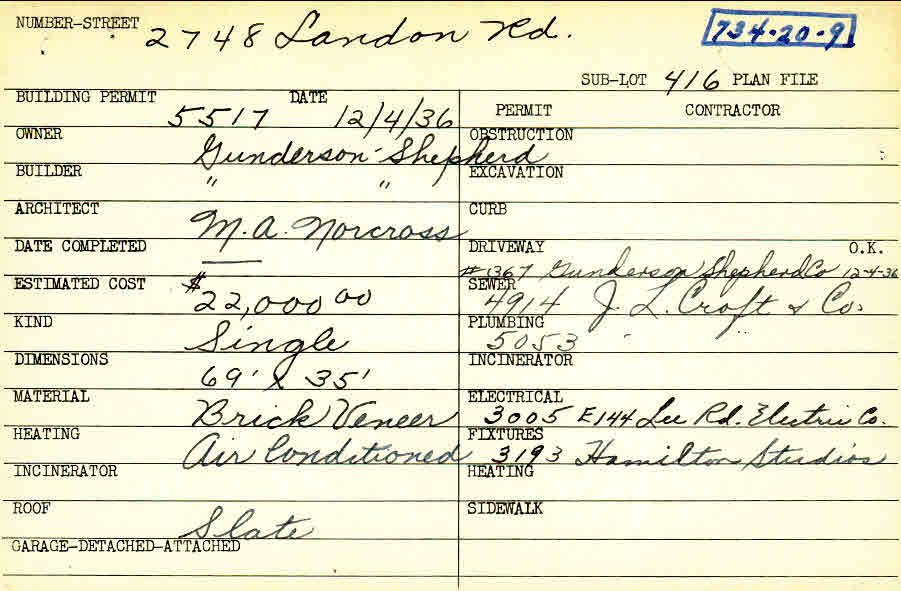 NUMBER-STREET 2748 Landon Rd. 734-20-9
SUB-LOT 416 PLAN FILE
BUILDING PERMIT 5517 DATE 12/4/36
PERMIT CONTRACTOR
OWNER Gunderson-Shepherd
OBSTRUCTION
BUILDER " "
EXCAVATION
ARCHITECT M.A. Norcross
CURB
DATE COMPLETED —
DRIVEWAY O.K.
#1367 Gunderson Shepherd Co 12-4-36
ESTIMATED COST $22,000 00
SEWER 4914 J. L. Croft & Co.
KIND Single
PLUMBING 5053 " "
DIMENSIONS 69' x 35'
INCINERATOR
MATERIAL Brick Veneer
ELECTRICAL 3005 E144 Lee Rd. Electric Co.
HEATING Air Conditioned
FIXTURES 3193 Hamilton Studios
INCINERATOR
HEATING
ROOF Slate
SIDEWALK
GARAGE-DETACHED-ATTACHED